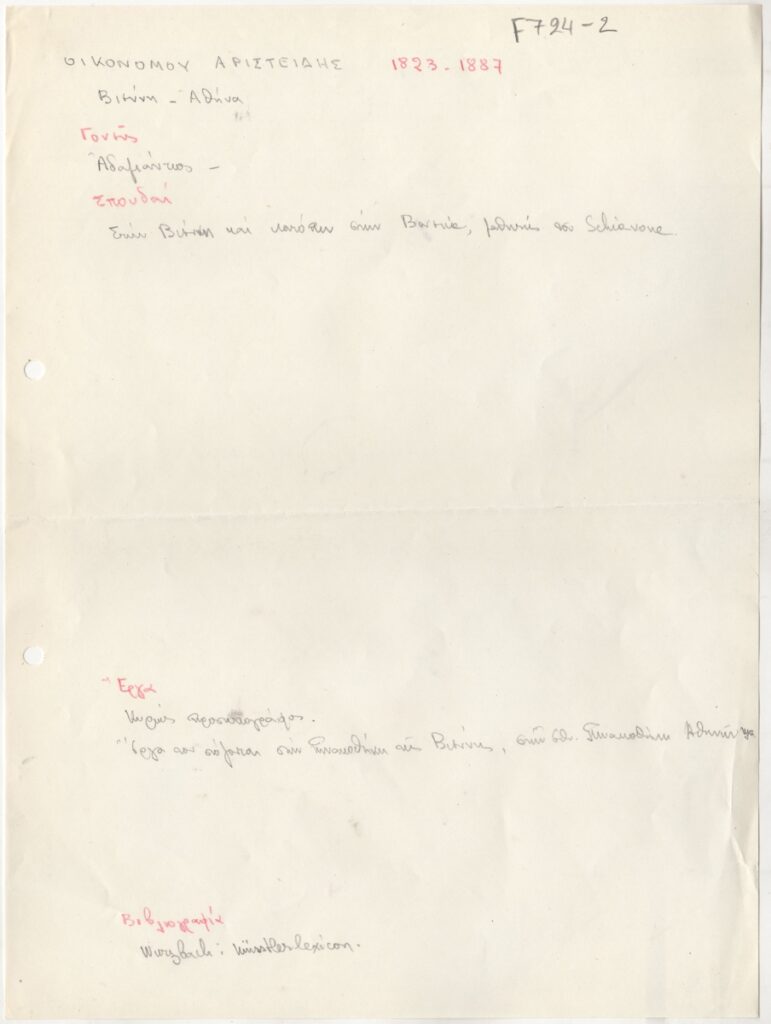 F724-2
ΟΙΚΟΝΟΜΟΥ ΑΡΙΣΤΕΙΔΗΣ 1823-1887
Βιέννη - Ἀθήνα
Γονεῖς
Ἀδαμάντιος -
Σπουδαί
Στήν Βιέννη καί κατόπιν στήν Βενετία, μαθητής του Schiavone.
Ἔργα
Κυρίως προσωπογράφος.
Ἔργα του σώζονται στήν Πινακοθήκη τῆς Βιέννης, στήν Ἐθν. Πινακοθήκη Ἀθηνῶν
Βιβλιογραφία
Wurzbach: Künstlerlexicon.